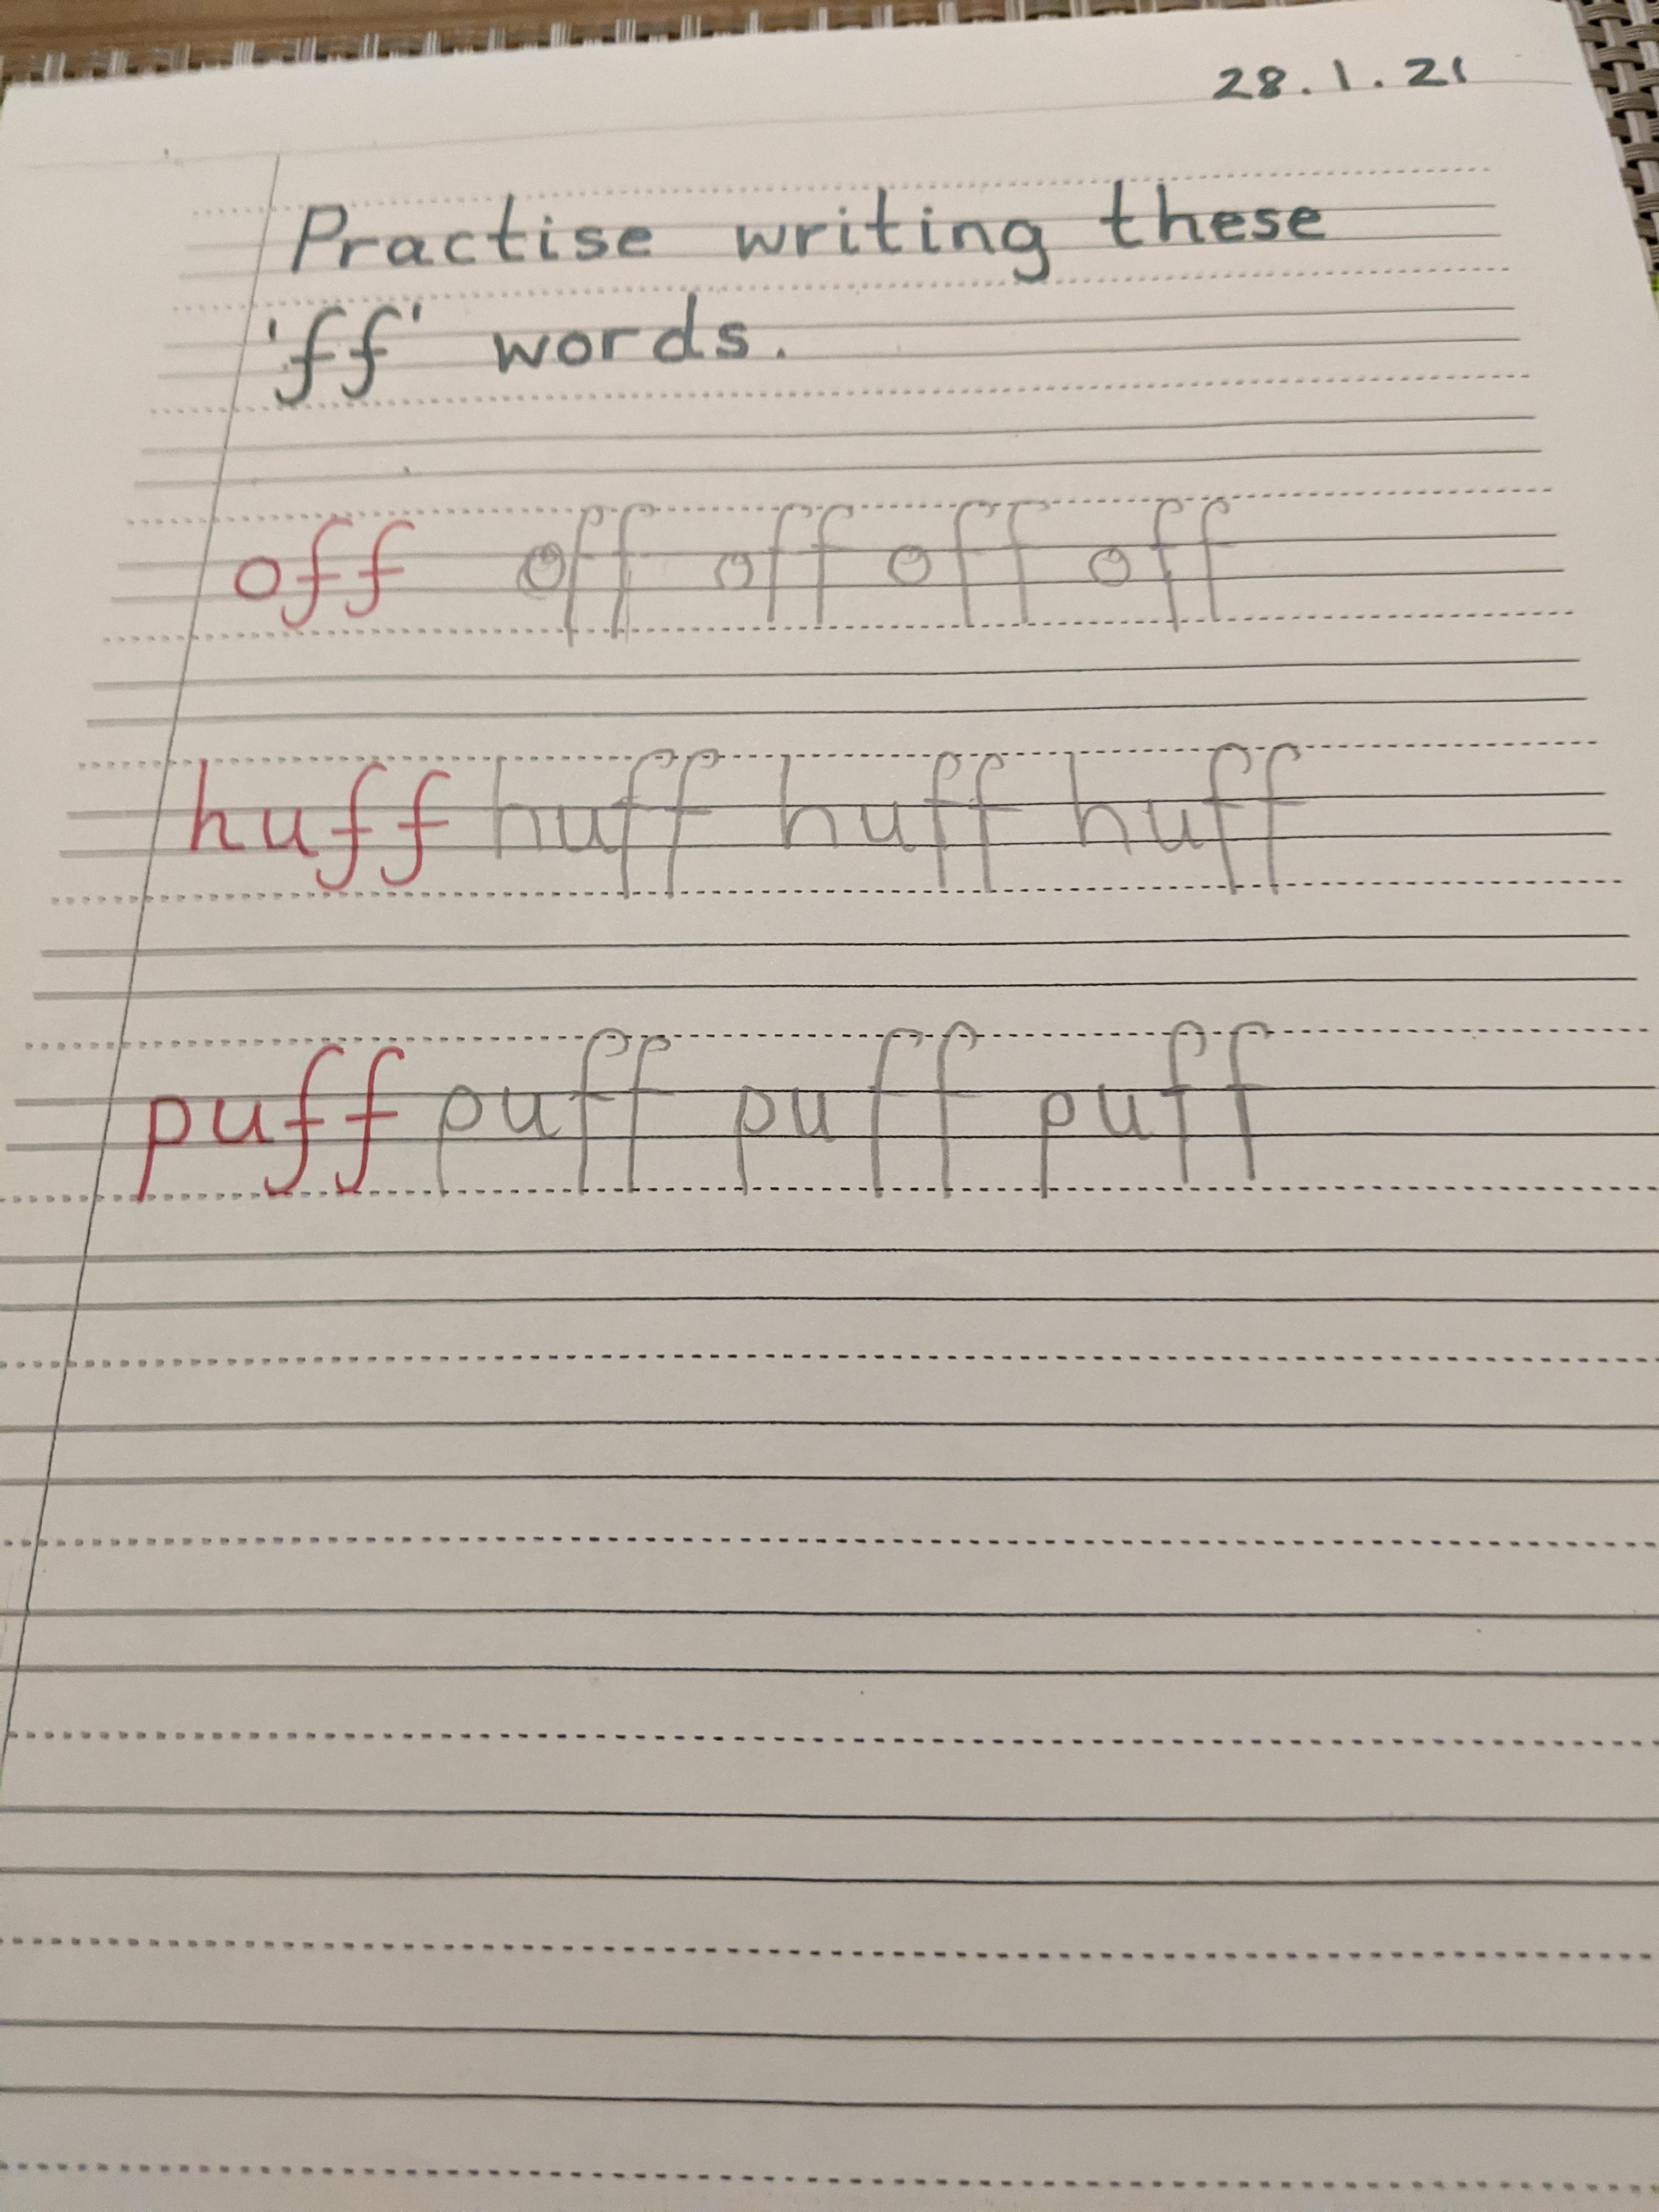 28.1.21
Practise writing these
'ff' words.
off off off off off
huff huff huff huff
puff puff puff puff